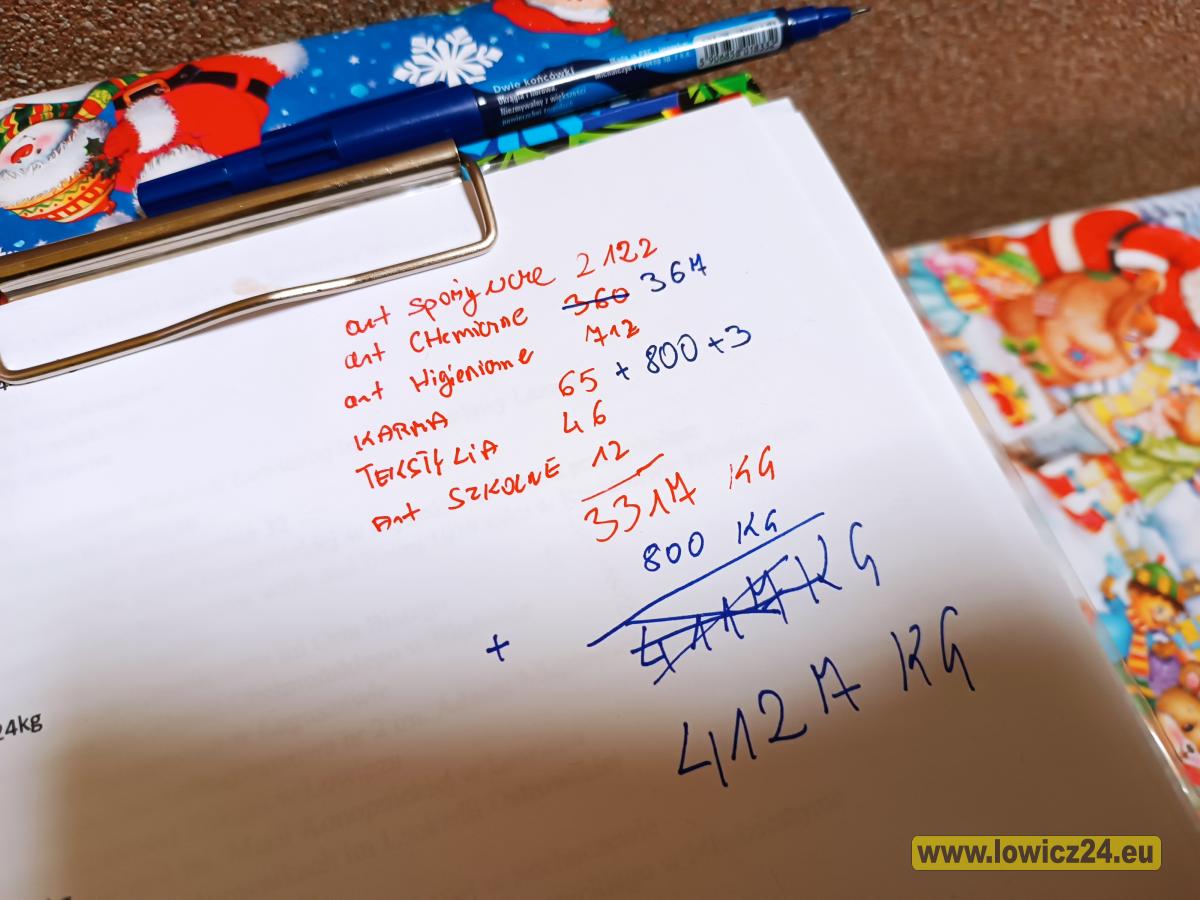 Dwie końcówki
Okrągła i
Niezmywalny z większości
powierzchni
art spożywcze 2122
art CHemiczne 360 367
art Higieniczne 712
KARMA 65 + 800 + 3
TEKSTYLIA 46
Art SZKOLNE 12
3317 KG
800 KG
+ 4117 KG
4127 KG
24kg
www.lowicz24.eu